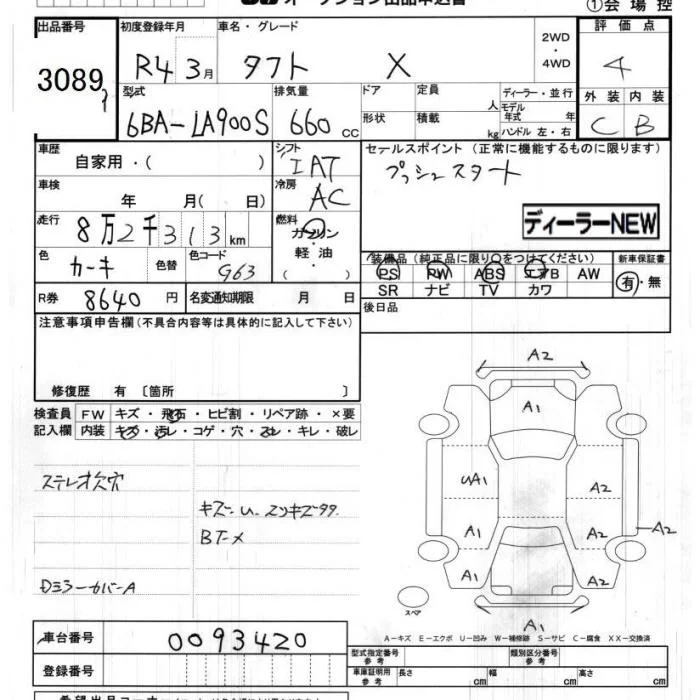 オークション出品申込書
①会場控
出品番号 初度登録年月 車名・グレード 2WD・4WD 評価点
3089 R4 3月 タフト X 4
型式 排気量 ドア 定員 人 ディーラー・並行 外装 内装
6BA-LA900S 660cc 形状 積載 kg モデル年式 年 ハンドル 左・右 C B
車歴 自家用・( ) シフト IAT セールスポイント(正常に機能するものに限ります)
車検 年 月( 日) 冷房 AC プッシュスタート
走行 8万2千313km 燃料 ガソリン・軽油・( ) ディーラーNEW
色 カーキ 色替 色コード G63 装備品(純正品に限り○をつけてください) 新車保証書
PS PW ABS エアB AW 有・無
SR ナビ TV カワ
R券 8640円 名変通知期限 月 日 後日品
注意事項申告欄(不具合内容等は具体的に記入して下さい)
修復歴 有〔箇所 〕
検査員記入欄 FW キズ・飛石・ヒビ割・リペア跡・×要
内装 キズ・汚レ・コゲ・穴・ヌレ・キレ・破レ
ステレオ欠穴
キズ・U、スリキズ
BT-X
DミラーカバーA
A2
A1
UA1 A2
A1 A2 A2
A1 A2
スペア
A1
A-キズ E-エクボ U-凹み W-補修跡 S-サビ C-腐食 XX-交換済
車台番号 0093420 型式指定番号 参考 類別区分番号 参考
登録番号 車庫証明用 参考 長さ cm 幅 cm 高さ cm
希望出品コーナー